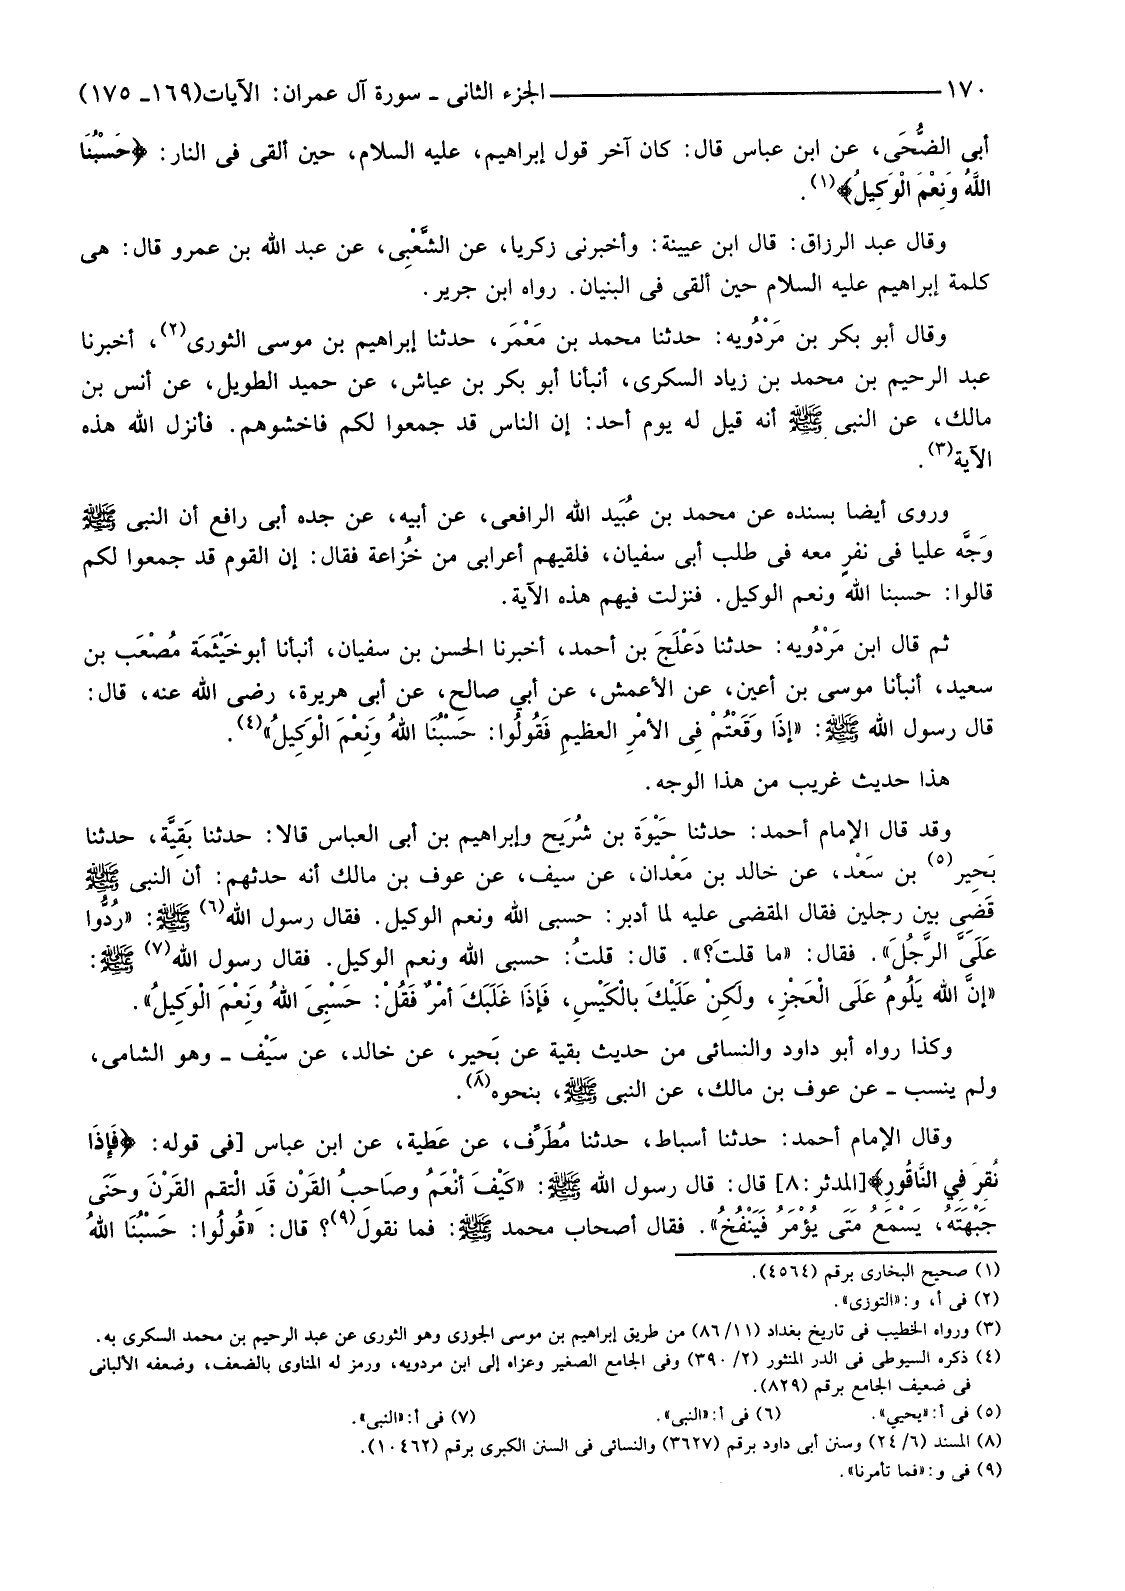 ١٧٠ ــــــــــــــــــــــــــــ الجزء الثانى ـ سورة آل عمران: الآيات(١٦٩ـ ١٧٥)
أبى الضُّحَى، عن ابن عباس قال: كان آخر قول إبراهيم، عليه السلام، حين ألقى فى النار: ﴿حَسْبُنَا
اللَّهُ وَنِعْمَ الْوَكِيلُ﴾(١).
وقال عبد الرزاق: قال ابن عيينة: وأخبرنى زكريا، عن الشَّعْبِى، عن عبد الله بن عمرو قال: هى
كلمة إبراهيم عليه السلام حين ألقى فى البنيان. رواه ابن جرير.
وقال أبو بكر بن مَرْدُويه: حدثنا محمد بن مَعْمَر، حدثنا إبراهيم بن موسى الثورى(٢)، أخبرنا
عبد الرحيم بن محمد بن زياد السكرى، أنبأنا أبو بكر بن عياش، عن حميد الطويل، عن أنس بن
مالك، عن النبى ﷺ أنه قيل له يوم أحد: إن الناس قد جمعوا لكم فاخشوهم. فأنزل الله هذه
الآية(٣).
وروى أيضا بسنده عن محمد بن عُبَيد الله الرافعى، عن أبيه، عن جده أبى رافع أن النبى ﷺ
وَجَّه عليا فى نفرٍ معه فى طلب أبى سفيان، فلقيهم أعرابى من خُزاعة فقال: إن القوم قد جمعوا لكم
قالوا: حسبنا الله ونعم الوكيل. فنزلت فيهم هذه الآية.
ثم قال ابن مَرْدُويه: حدثنا دَعْلَجَ بن أحمد، أخبرنا الحسن بن سفيان، أنبأنا أبوخَيْثَمَة مُصْعَب بن
سعيد، أنبأنا موسى بن أعين، عن الأعمش، عن أبي صالح، عن أبى هريرة، رضى الله عنه، قال:
قال رسول الله ﷺ: «إذَا وَقَعْتُمْ فِى الأمْرِ العظيمِ فَقُولُوا: حَسْبُنَا اللهُ وَنِعْمَ الْوَكِيلُ»(٤).
هذا حديث غريب من هذا الوجه.
وقد قال الإمام أحمد: حدثنا حَيْوَة بن شُرَيح وإبراهيم بن أبى العباس قالا: حدثنا بَقِيَّة، حدثنا
بَحِير(٥) بن سَعْد، عن خالد بن مَعْدان، عن سيف، عن عوف بن مالك أنه حدثهم: أن النبى ﷺ
قَضَى بين رجلين فقال المقضى عليه لما أدبر: حسبى الله ونعم الوكيل. فقال رسول الله(٦) ﷺ: «رُدُّوا
عَلَىَّ الرَّجُلَ». فقال: «ما قلتَ؟». قال: قلتُ: حسبى الله ونعم الوكيل. فقال رسول الله(٧) ﷺ:
«إنَّ الله يَلُومُ عَلَى الْعَجْزِ، ولَكِنْ عَلَيْكَ بِالْكَيْسِ، فَإذَا غَلَبَكَ أمْرٌ فَقُلْ: حَسْبِىَ اللهُ وَنِعْمَ الْوَكِيلُ».
وكذا رواه أبو داود والنسائى من حديث بقية عن بَحير، عن خالد، عن سَيْف ـ وهو الشامى،
ولم ينسب ـ عن عوف بن مالك، عن النبى ﷺ، بنحوه(٨).
وقال الإمام أحمد: حدثنا أسباط، حدثنا مُطَرِّف، عن عَطية، عن ابن عباس [فى قوله: ﴿فَإِذَا
نُقِرَ فِي النَّاقُورِ﴾[المدثر:٨] قال: قال رسول الله ﷺ: «كَيْفَ أنْعَمُ وصَاحِبُ القَرْن قَدِ الْتقم القَرْنَ وحَنَى
جَبْهَتَهُ، يَسْمَعُ مَتَى يُؤْمَرُ فَيَنْفُخُ». فقال أصحاب محمد ﷺ: فما نقول(٩)؟ قال: «قُولُوا: حَسْبُنَا اللهُ
(١) صحيح البخارى برقم (٤٥٦٤).
(٢) فى أ، و:«التوزى».
(٣) ورواه الخطيب فى تاريخ بغداد (١١/ ٨٦) من طريق إبراهيم بن موسى الجوزى وهو الثورى عن عبد الرحيم بن محمد السكرى به.
(٤) ذكره السيوطى فى الدر المنثور (٢/ ٣٩٠) وفى الجامع الصغير وعزاه إلى ابن مردويه، ورمز له المناوى بالضعف، وضعفه الألبانى
فى ضعيف الجامع برقم (٨٢٩).
(٥) فى أ:«يحيي». (٦) فى أ:«النبى». (٧) فى أ:«النبى».
(٨) المسند (٦/ ٢٤) وسنن أبى داود برقم (٣٦٢٧) والنسائى فى السنن الكبرى برقم (١٠٤٦٢).
(٩) فى و:«فما تأمرنا».